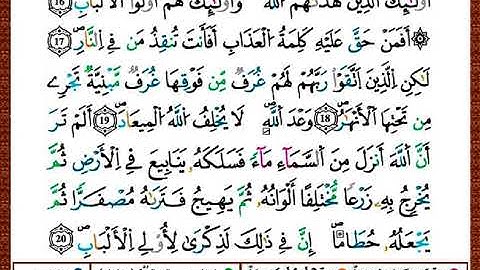 أُوْلَٰٓئِكَ اَ۬لذِينَ هَد۪يٰهُمُ اُ۬للَّهُ وَأُوْلَٰٓئِكَ هُمُۥٓ أُوْلُواْ اُ۬لَالْبَٰبِۖ 16
۞ أَفَمَنْ حَقَّ عَلَيْهِ كَلِمَةُ اُ۬لْعَذَابِ أَفَأَنتَ تُنقِذُ مَن فِے اِ۬لنّ۪ارِۖ 17
لَٰكِنِ اِ۬لذِينَ اَ۪تَّقَوْاْ رَبَّهُمْ لَهُمْ غُرَفٞ مِّن فَوْقِهَا غُرَفٞ مَّبْنِيَّةٞ تَجْرِے
مِن تَحْتِهَا اَ۬لَانْهَٰرُۖ 18 وَعْدَ اَ۬للَّهِۖ لَا يُخْلِفُ اُ۬للَّهُ اُ۬لْمِيعَادَۖ 19 أَلَمْ تَرَ
أَنَّ اَ۬للَّهَ أَنزَلَ مِنَ اَ۬لسَّمَآءِ مَآءٗ فَسَلَكَهُۥ يَنَٰبِيعَ فِے اِ۬لَارْضِ ثُمَّ
يُخْرِجُ بِهِۦ زَرْعاٗ مُّخْتَلِفاً اَلْوَٰنُهُۥ ثُمَّ يَهِيجُ فَتَر۪يٰهُ مُصْفَرّاٗ ثُمَّ
يَجْعَلُهُۥ حُطَٰماًۖ اِنَّ فِے ذَٰلِكَ لَذِكْر۪يٰ لِأُوْلِے اِ۬لَالْبَٰبِۖ 20